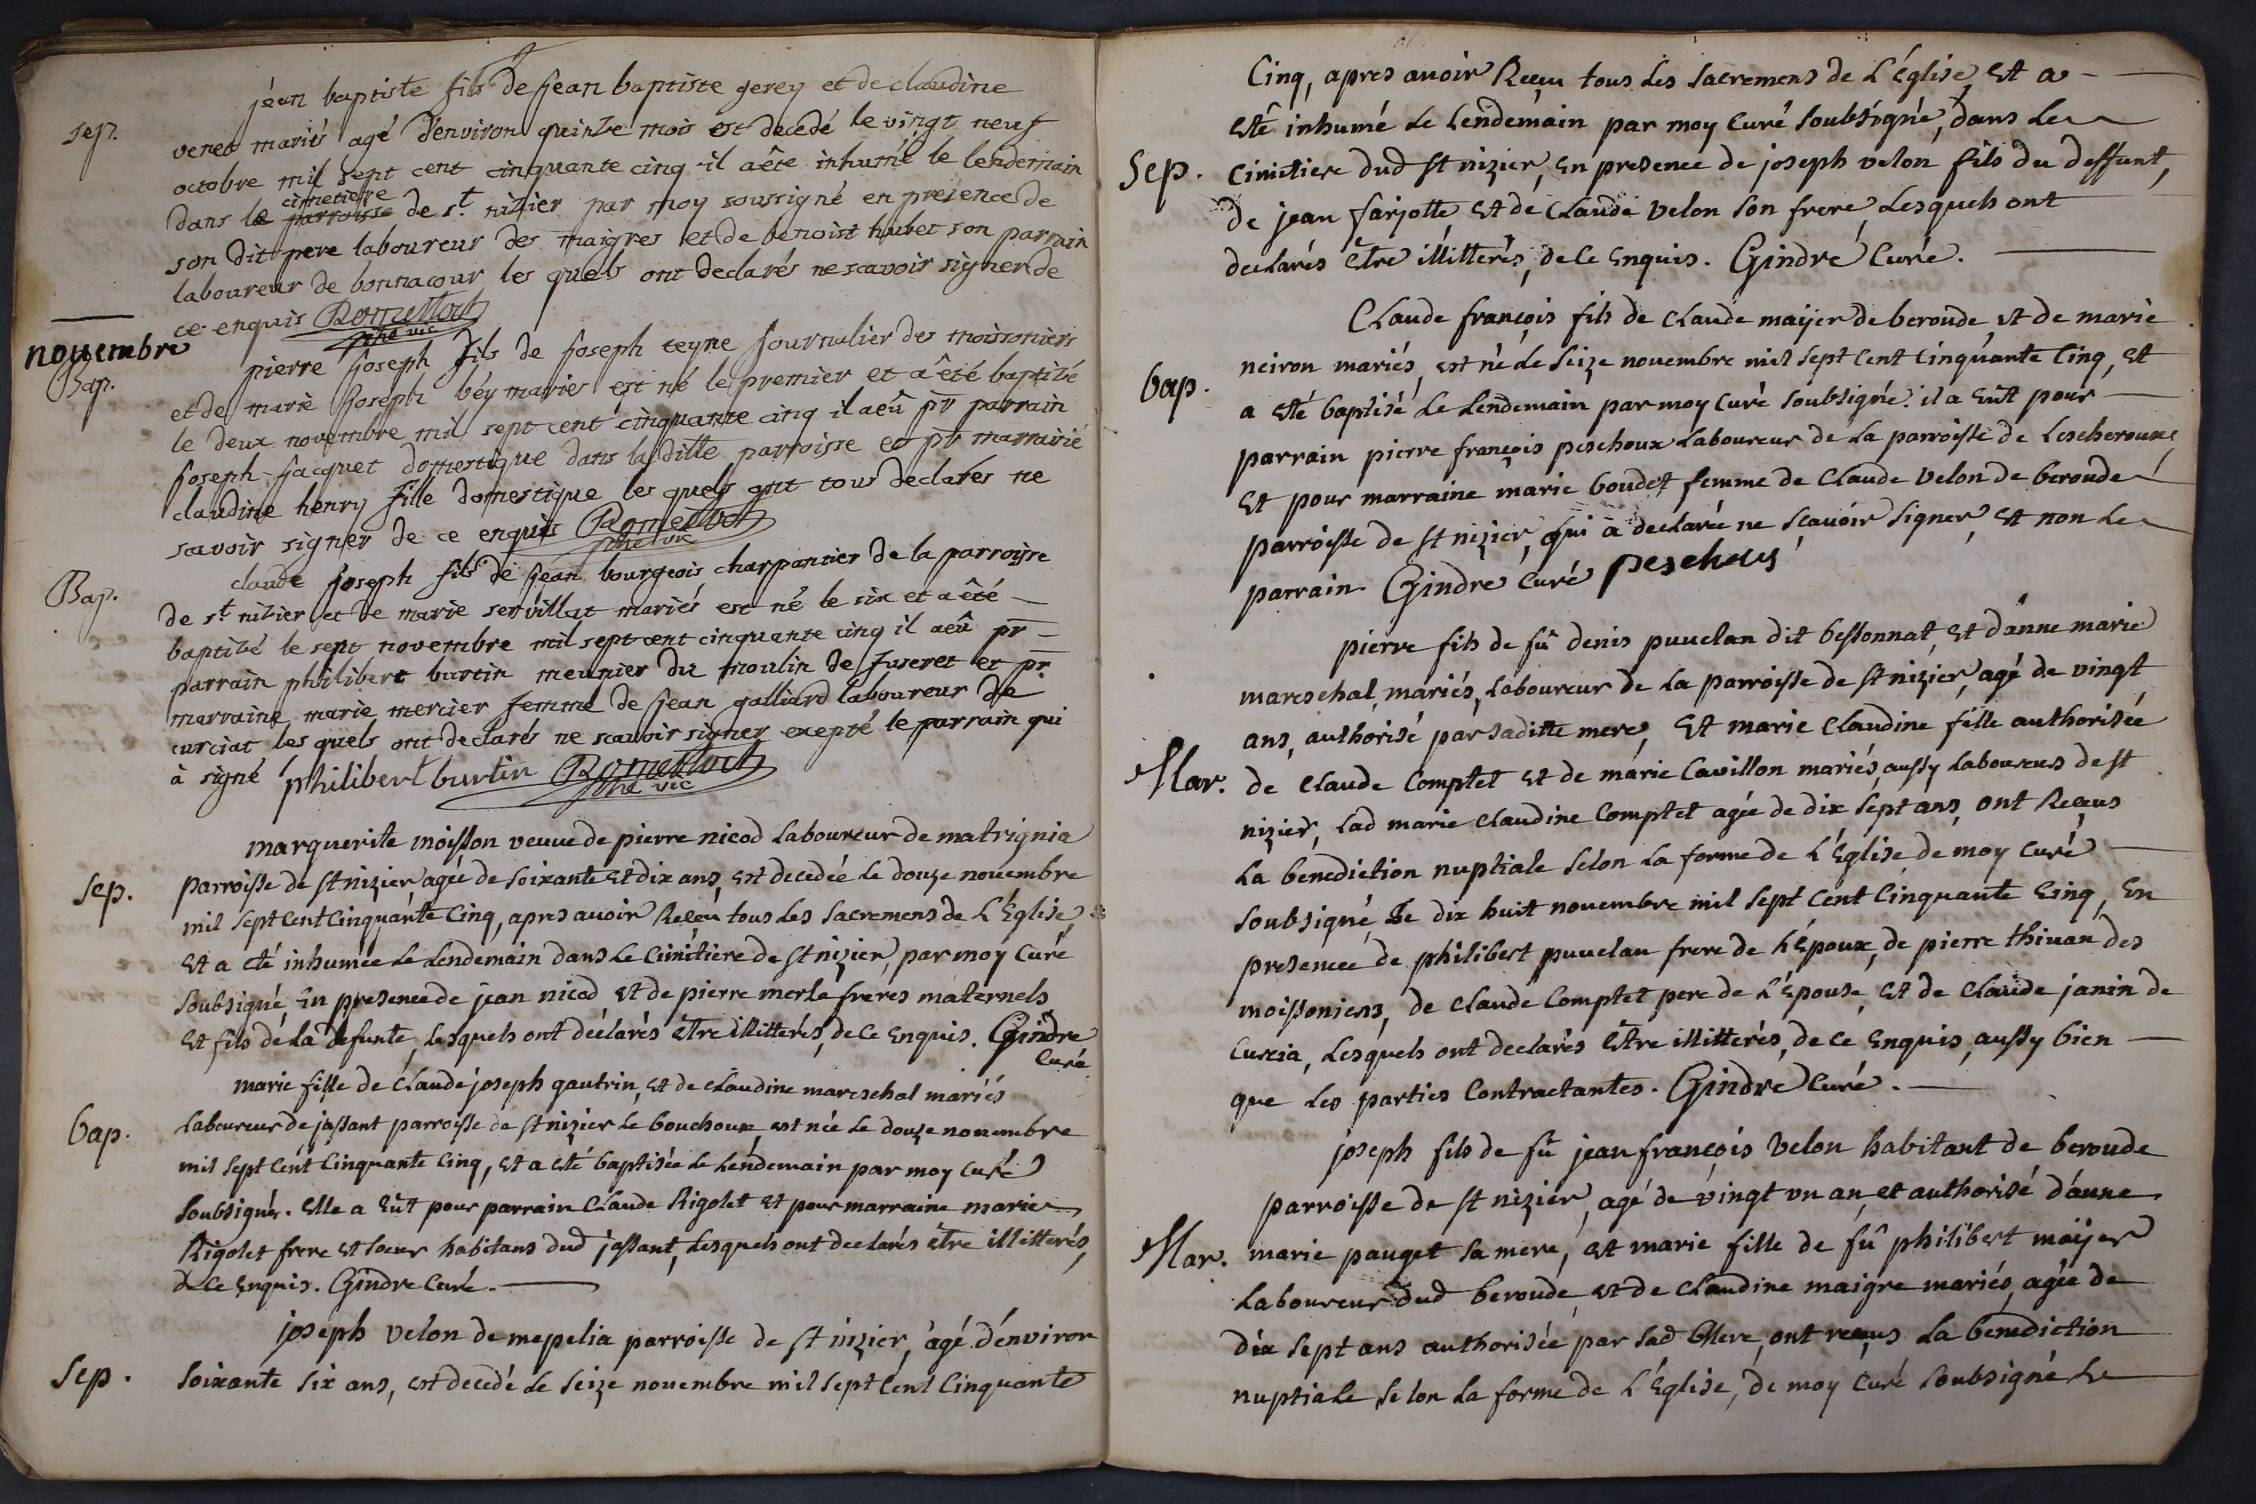 jean baptiste fils de jean baptiste gerey et de claudine
sep.
veneo mariés agé d'environ quinze mois est decedé le vingt neuf
octobre mil sept cent cinquante cinq il a êté inhumé le lendemain
cimetiere
dans le parroisse de s.t nizier par moy soussigné en presence de
son dit pere laboureur des maigres et de benoist hubet son parrain
laboureur de bonnacour les quels ont declarés ne scavoir signer de
ce enquis
ptre vic
novembre
Bap.
pierre joseph fils de joseph teyne journalier des moissoniers
et de marie joseph béy mariés est né le premier et a êté baptizé
le deux novembre mil sept cent cinquante cinq il a eû pr parrain
joseph jacquet domestique dans la ditte parroisse et pr marrainé
claudine henry fille domestique les quels ont tous declarés ne
scavoir signer de ce enquis
ptre vic
Bap.
claude joseph fils de jean bourgeois charpantier de la parroisse
de s.t nizier et de marie servillat mariés est né le six et a êté
baptizé le sept novembre mil sept cent cinquante cinq il a eû pr
parrain philibert burtin meunier du moulin de juseret et pr.
marraine marie mercier femme de jean galliard laboureur de
curciat les quels ont declarés ne scavoir signer exepté le parrain qui
à signé philibert burtin
ptre vic
marguerite moisson veuve de pierre nicod laboureur de matrignia
sep.
parroisse de st nizier agée de soixante et dix ans, est decedée le douze novembre
mil sept cent cinquante cinq, apres avoir Reçeu tous les sacremens de L'Église,
Et a eté inhumée le lendemain dans le cimitiere de st nizier, par moy curé
soubsigné, En presence de jean nicod et de pierre merle freres maternels
Et fils de la defunte, lesquels ont déclarés être illitterés, de ce enquis. Gindre
curé
marie fille de claude joseph gautrin, et de claudine mareschal mariés
bap.
laboureur de jassant parroisse de st nizier le bouchoux, est née le douze novembre
mil sept cent cinquante cinq, et a eté baptisée le lendemain par moy curé
soubsigné. Elle a Eüt pour parrain claude Rigolet et pour marraine marie
Rigolet frere et soeur habitans dud jassant, lesquels ont declarés être illitterés,
de ce enquis. Gindre curé.
joseph velon de mepelia parroisse de st nizier, agé d'environ
sep.
soixante six ans, est decedé le seize novembre mil sept cent cinquante
Cinq, apres avoir Reçeu tous les sacremens de L'Église, Et a
eté inhumé le lendemain par moy curé soubsigné, dans le
Sep.
cimitiere dud st nizier, en presence de joseph velon fils du deffunt,
de jean farjotte et de claude velon son frere, lesquels ont
declarés être illitterés, de ce enquis. Gindre Curé.
Claude françois fils de claude maijer de beroude, et de marie
neiron mariés, est né le seize novembre mil sept cent cinquante cinq, et
bap.
a eté baptisé le lendemain par moy curé soubsigné. il a Eüt pour
parrain pierre françois peschoux laboureur de la parroisse de lescheroux,
Et pour marraine marie boudet femme de claude velon de beroude
parroisse de st nizier, qui a declarée ne sçavoir signer, et non le
parrain. Gindre curé peschous
pierre fils de fû denis puvelan dit bessonnat, et d'anne marie
mareschal, mariés, laboureur de la parroisse de st nizier, agé de vingt
ans, authorisé par saditte mere, Et marie claudine fille authorisée
Mar.
de claude Comptet et de marie Cavillon mariés, aussy laboureurs de st
nizier, lad marie claudine comptet agée de dix sept ans, ont Reçeus
La benediction nuptiale selon la forme de L'Église, de moy curé
soubsigné, le dix huit novembre mil sept cent cinquante Cinq, En
presence de philibert puvelan frere de L'Époux, de pierre thivan des
moissoniers, de claude Comptet pere de L'Épouse, et de claude janin de
Curcia, lesquels ont declarés être illitterés, de ce enquis, aussy bien
que les parties contractantes. Gindre Curé.
joseph fils de fû jean françois velon habitant de beroude
parroisse de st nizier, agé de vingt un an, et authorisé d'anne
Mar.
marie pauget sa mere, Et marie fille de fû philibert maijer
laboureur dud beroude, et de claudine maigre mariés, agée de
dix sept ans authorisée par sad Mere, ont reçeus la benediction
nuptiale selon la forme de L'Église, de moy curé soubsigné Le